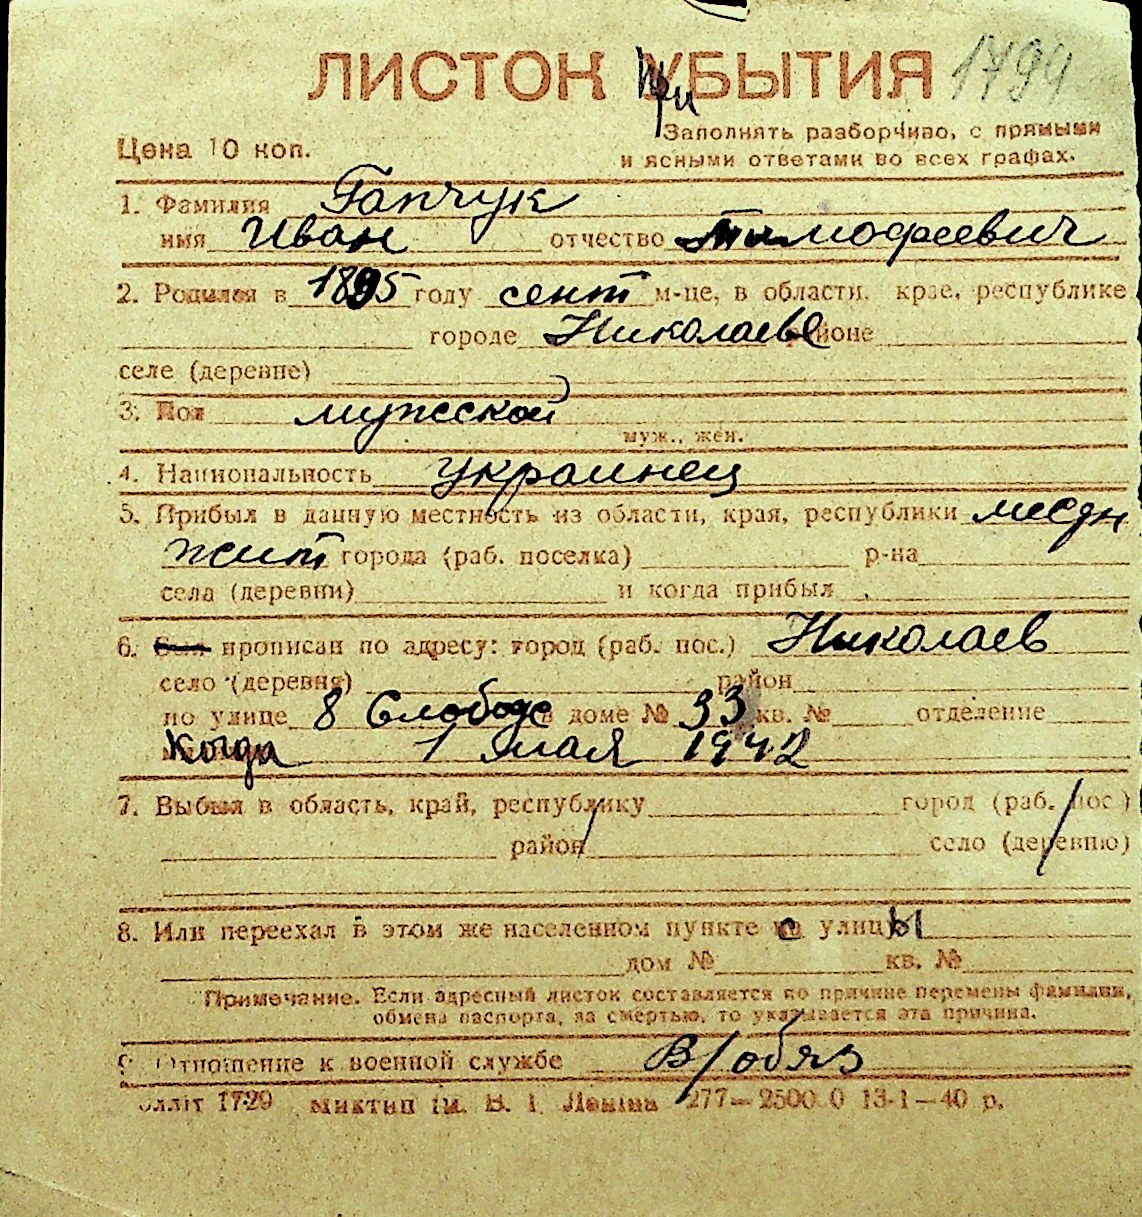 ЛИСТОК При УБЫТИЯ 1794
Заполнять разборчиво, с прямыми
Цена 10 коп.
и ясными ответами во всех графах.
1. Фамилия Гапчук
имя Иван отчество Тимофеевич
2. Родился в 1895 году сент м-це, в области, крае, республике
городе Николаеве районе
селе (деревне)
3. Пол мужской
муж., жен.
4. Национальность украинец
5. Прибыл в данную местность из области, края, республики местн
жит города (раб. поселка) р-на
села (деревни) и когда прибыл
6. Был прописан по адресу: город (раб. пос.) Николаев
село (деревня) район
по улице 8 Слободс в доме № 33 кв. № отделение
когда 1 мая 1942
7. Выбыл в область, край, республику город (раб. пос.)
район село (деревню)
8. Или переехал в этом же населенном пункте с улицы
дом № кв. №
Примечание. Если адресный листок составляется по причине перемены фамилии,
обмена паспорта, за смертью, то указывается эта причина.
9. Отношение к военной службе В/обяз
1729 им. В. І. Леніна 277—2500 0 13-1—40 р.